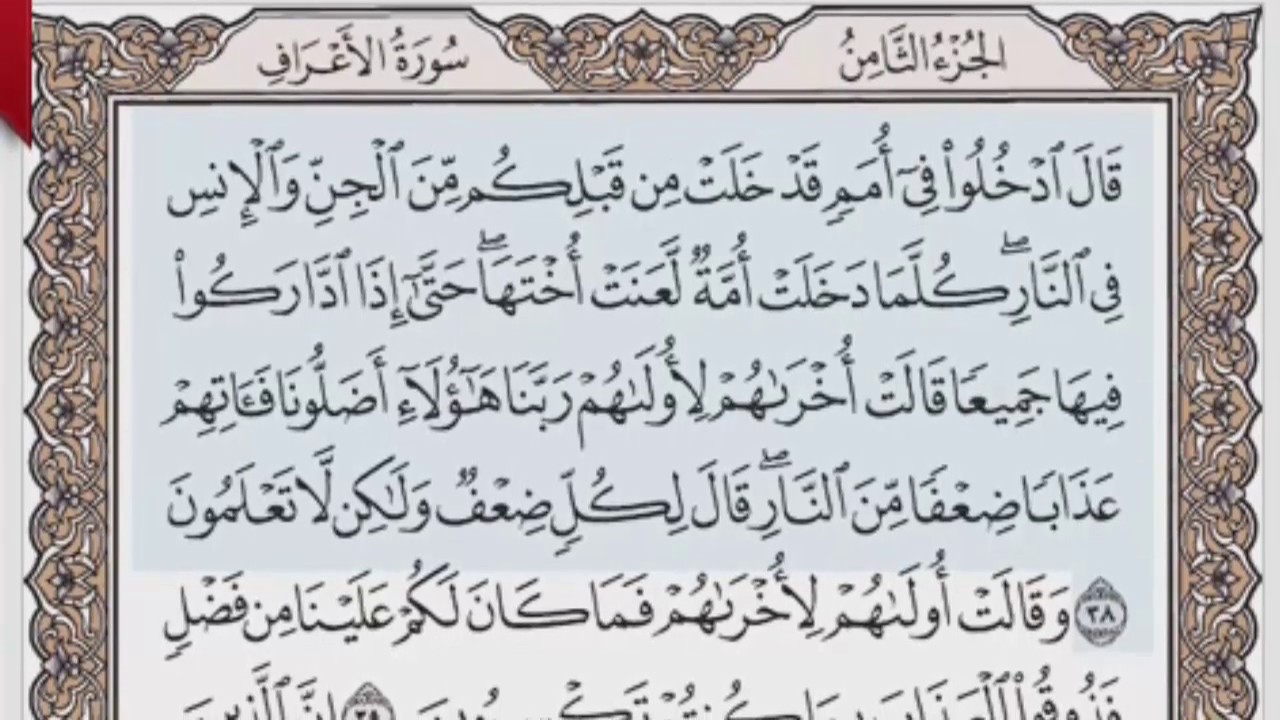 الجُزْءُ الثَّامِنُ
سُورَةُ الأَعْرَافِ
قَالَ ٱدْخُلُوا۟ فِىٓ أُمَمٍ قَدْ خَلَتْ مِن قَبْلِكُم مِّنَ ٱلْجِنِّ وَٱلْإِنسِ
فِى ٱلنَّارِ ۖ كُلَّمَا دَخَلَتْ أُمَّةٌ لَّعَنَتْ أُخْتَهَا ۖ حَتَّىٰٓ إِذَا ٱدَّارَكُوا۟
فِيهَا جَمِيعًا قَالَتْ أُخْرَىٰهُمْ لِأُولَىٰهُمْ رَبَّنَا هَٰٓؤُلَآءِ أَضَلُّونَا فَـَٔاتِهِمْ
عَذَابًا ضِعْفًا مِّنَ ٱلنَّارِ ۖ قَالَ لِكُلٍّ ضِعْفٌ وَلَٰكِن لَّا تَعْلَمُونَ
٣٨ وَقَالَتْ أُولَىٰهُمْ لِأُخْرَىٰهُمْ فَمَا كَانَ لَكُمْ عَلَيْنَا مِن فَضْلٍ
فَذُوقُوا۟ ٱلْعَذَابَ بِمَا كُنتُمْ تَكْسِبُونَ ٣٩ إِنَّ ٱلَّذِينَ